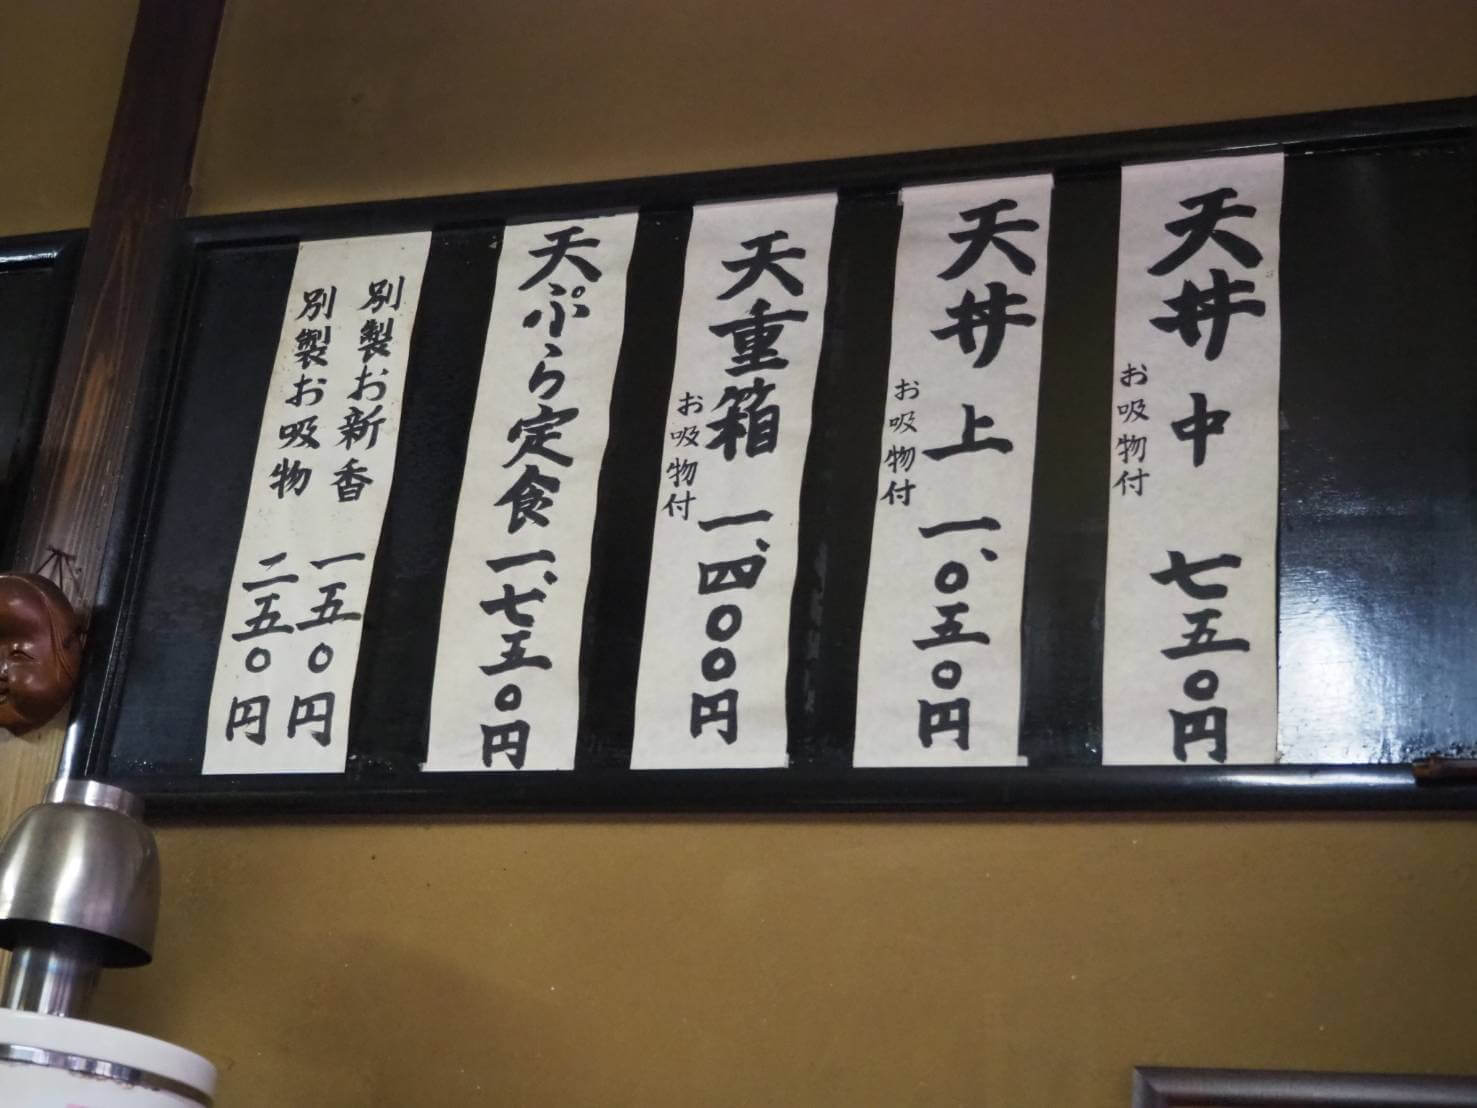 天丼 中 七五〇円
お吸物付
天丼 上 一、〇五〇円
お吸物付
天重箱 一、四〇〇円
お吸物付
天ぷら定食 一、七五〇円
別製お新香 一五〇円
別製お吸物 二五〇円